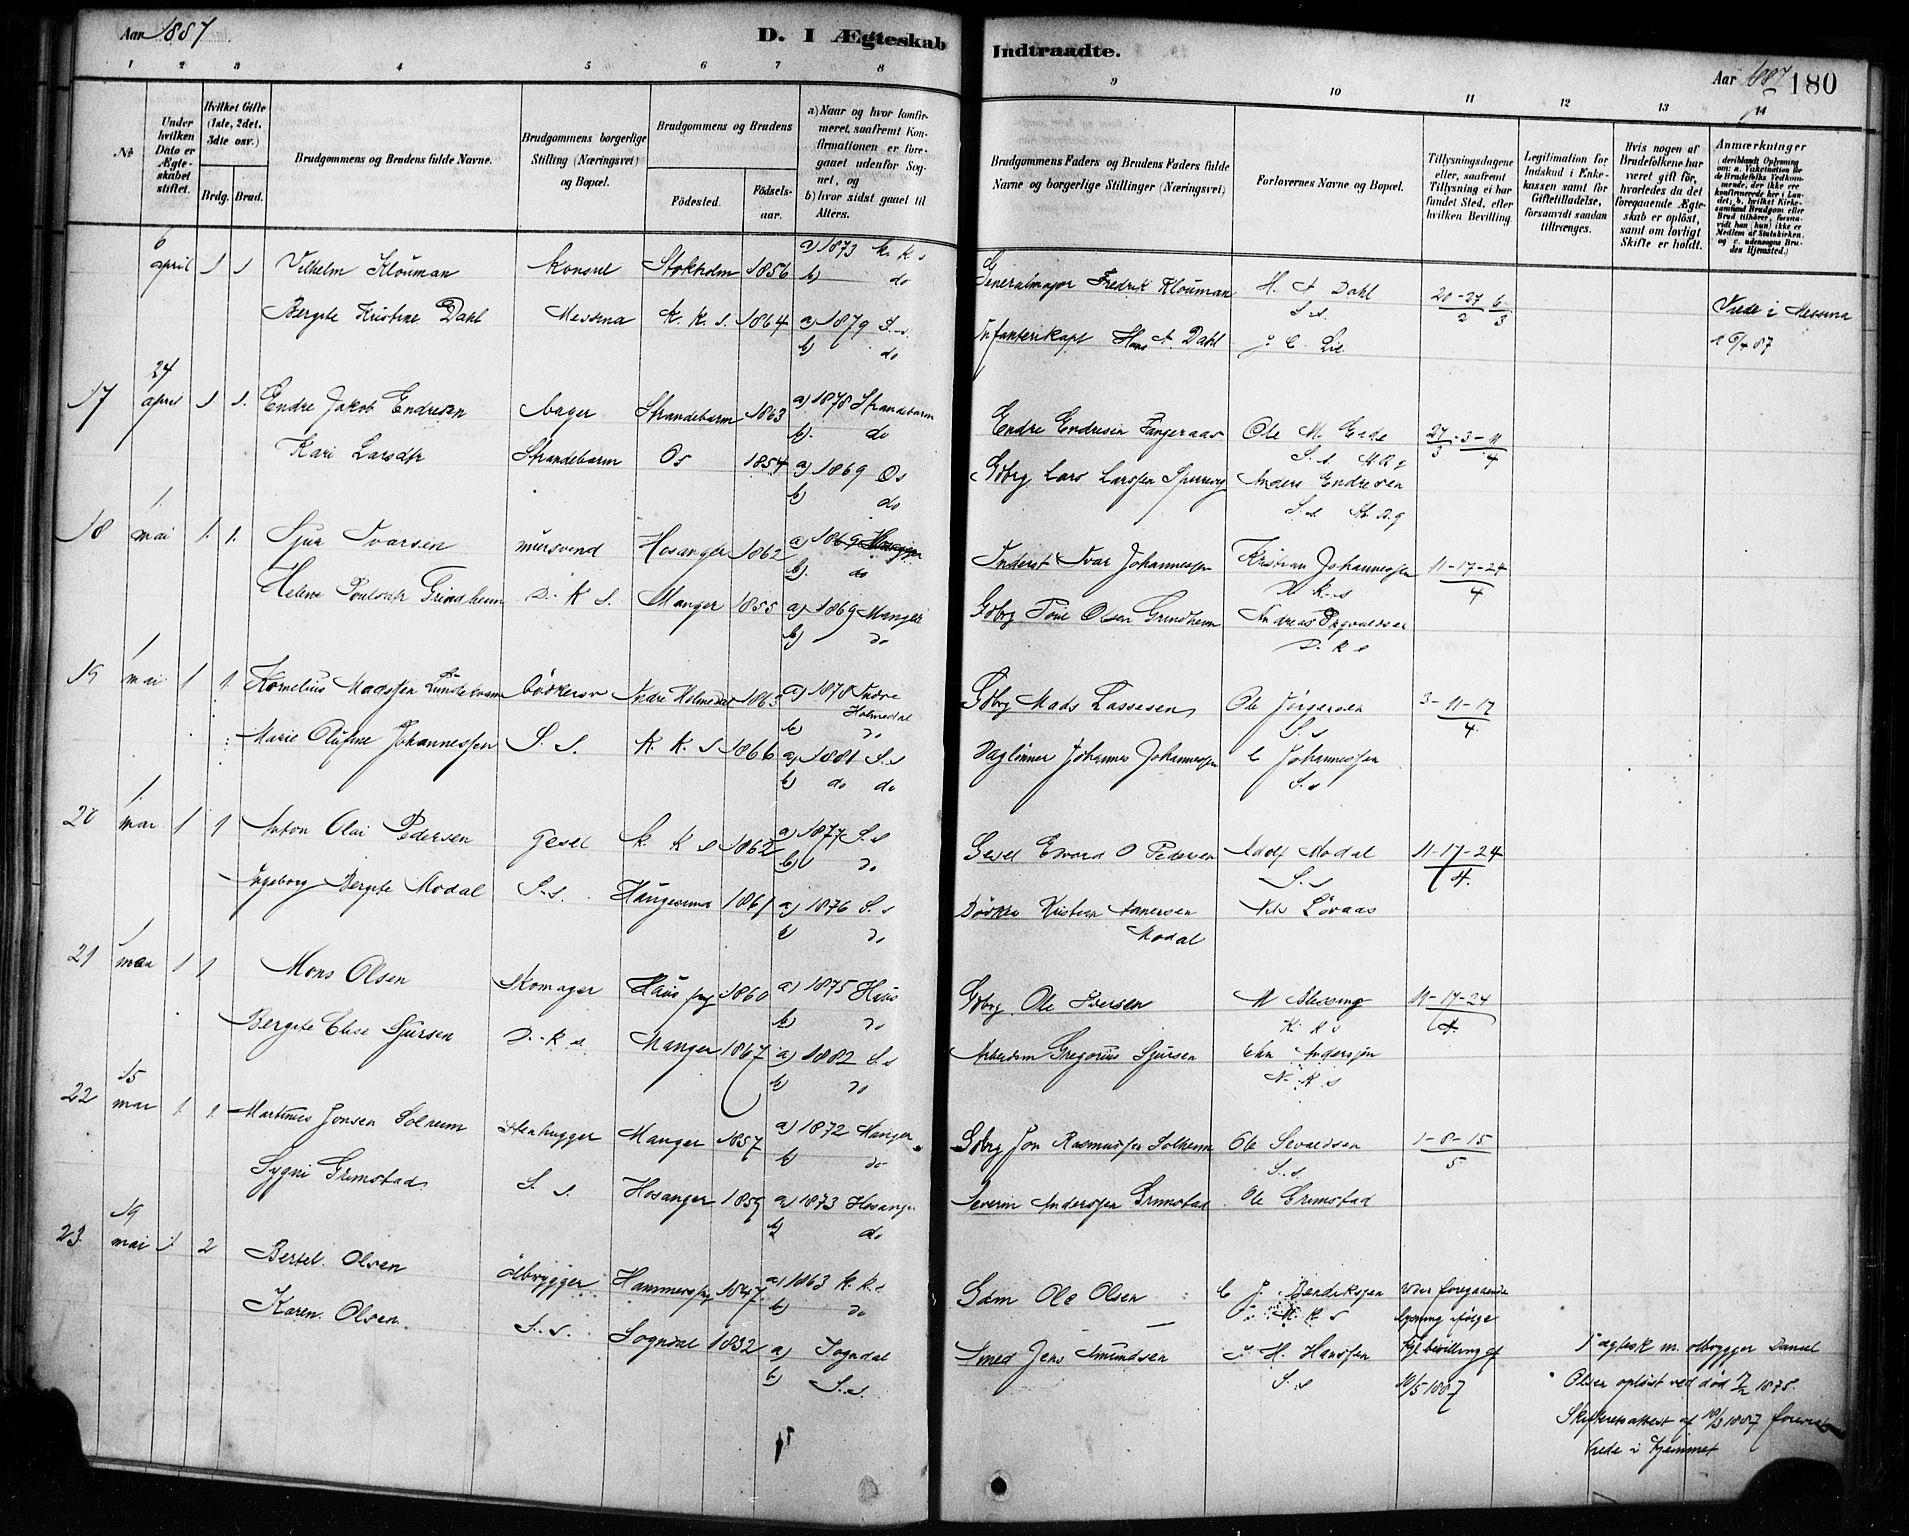 Aar 1887
D. I Ægteskab Indtraadte.
Aar 1887
180
1 2 3 4 5 6 7 8 9 10 11 12 13 14
№
Under hvilken Dato er Ægteskabet stiftet.
Hvilket Gifte (1ste, 2det, 3die osv.)
Brdg. Brud.
Brudgommens og Brudens fulde Navne.
Brudgommens borgerlige Stilling (Næringsvei) og Bopæl.
Brudgommens og Brudens
Fødested. Fødsels-aar.
a) Naar og hvor konfirmeret, saafremt Konfirmationen er foregaaet udenfor Sognet, og
b) hvor sidst gaaet til Alters.
Brudgommens Faders og Brudens Faders fulde Navne og borgerlige Stillinger (Næringsvei)
Forlovernes Navne og Bopæl.
Tillysningsdagene eller, saafremt Tillysning ei har fundet Sted, efter hvilken Bevilling.
Legitimation for Indskud i Enkekassen samt for Giftetilladelse, forsaavidt saadan tiltrænges.
Hvis nogen af Brudefolkene har været gift før, hvorledes da det foregaaende Ægteskab er opløst, samt om lovligt Skifte er holdt.
Anmærkninger
(deriblandt Oplysning om: a. Vakcination for de Brudefolks Vedkommende, der ikke ere konfirmerede her i Landet; b. hvilket Kirkesamfund Brudgom eller Brud tilhører, forsaavidt han (hun) ikke er Medlem af Statskirken, og c. udensogns Brudes Hjemsted.)
6 april 1 1 Vilhelm Klouman Konsul Stokholm 1856 a) 1873 K. K. s b) do Generalmajor Fredrik Klouman H. A Dahl S. s. 20-27/2 6/3 Viede i Messina
Bergite Kristine Dahl Messina K. K. s. 1864 a) 1879 S. s b) do Infanterikapt Hans A. Dahl J. C. Lie 6/4 87
17 24 april 1 1. Endre Jakob Endresen bager Strandebarm 1863 a) 1878 Strandebarm b) do Endre Endresen Tangeraas Ole M. Eide S. s. 27/3-3-11/4
Kari Larsdtr Strandebarm Os 1854 a) 1869 Os b) do Gdbrg Lars Larssen Anders Endresen S. s.
18 1. mai 1. 1. Sjur Ivarsen mursvend Hosanger 1862 a) b) do Inderst Ivar Johannessen Kristian Johannessen 11-17-24/4
Helene Poulsdtr Grindheim D. K s. Manger 1855 a) 1869 Manger b) do Gdbrg Poul Olsen Grindheim Andreas D. K s
19 1 mai 1 1 Kornelius Madssen Lundekvam bödkersv Indre Holmedal 1863 a) 1878 Indre Holmedal b) do Gdbrg Mads Lassesen Ole Jörgensen S. s 3-11-17/4
Marie Olufine Johannessen S. s. K. K. s 1866 a) 1881 S. s b) do do Daglönner Johannes Johannessen C Johannessen S. s
20 1. mai 1 1 Anton Olai Pedersen Gesel K K s 1862 a) 1877 S. s b) do Gesel Edvard O Pedersen Adolf Modal S. s 11-17-24/4.
Ingeborg Bergite Modal S. s. Haugesund 1861 a) 1876 S. s b) do Bödker Kristian Modal Nils Lövaas
21 1 mai 1 1 Mons Olsen skomager Haus prg 1860 a) 1875 Haus b) do Gdbrg Ole Iversen M Blessing K. K s 11-17-24/4.
Bergite Elise Sjursen D. K s. Manger 1867 a) 1882 S. s b) do Arbeidsm Gregorius Sjursen Chr Anderssen N. K s
22 15 mai 1. 1. Martinus Jonsen Solheim Stenhugger Manger 1857 a) 1872 Manger b) do Gdbrg Jon Rasmussen Solheim Ole Sevaldsen S. s. 1-8-15/5
Sygni Grimstad S. s. Hosanger 1859 a) 1873 Hosanger b) do Severin Anderssen Grimstad Ole Grimstad
23. 19 mai 1 2 Bertel Olsen ölbrygger Hammers prg 1847 a) 1863 K. K. s b) do Gdm Ole Olsen C J. Bendiksen K s uden foregaaende lysning ifölge
Karen Olsen S. s. Sogndal 1832 a) Sogndal b) S. s. Smed Jens Amundsen J. H. Hanssen S. s Kgl bevilling af 11/5 1887
I ægtesk m. ölbrygger Daniel Olsen oplöst ved död 1875. Skifteretsattest af 1887
Viede i Hjemmet